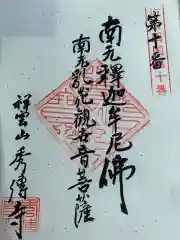 第十番
十番
南无釋迦牟尼佛
南无
観世音菩薩
祥雲山
秀傳寺